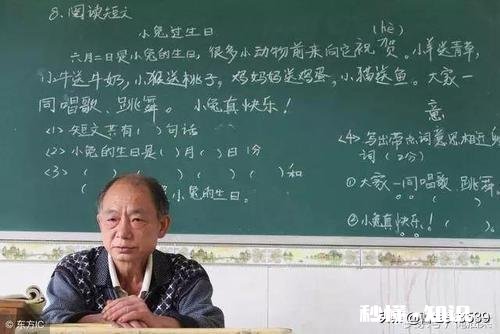 8、阅读短文
小兔过生日
(hè)
六月二日是小兔的生日，很多小动物前来向它祝贺。小羊送青草，
小牛送牛奶，小猴送桃子，鸡妈妈送鸡蛋，小猫送鱼。大家一
同唱歌、跳舞。小兔真快乐！
<1>短文共有( )句话
<2>小兔的生日是( )月( )日 1分
<3>( )( )( )( )( )和
小兔的生日。
意
<4>写出带点词意思相近的
词(2分)
①大家一同唱歌、跳舞。
( )
②小兔真快乐。！( )
©东方IC
秒懂 知识